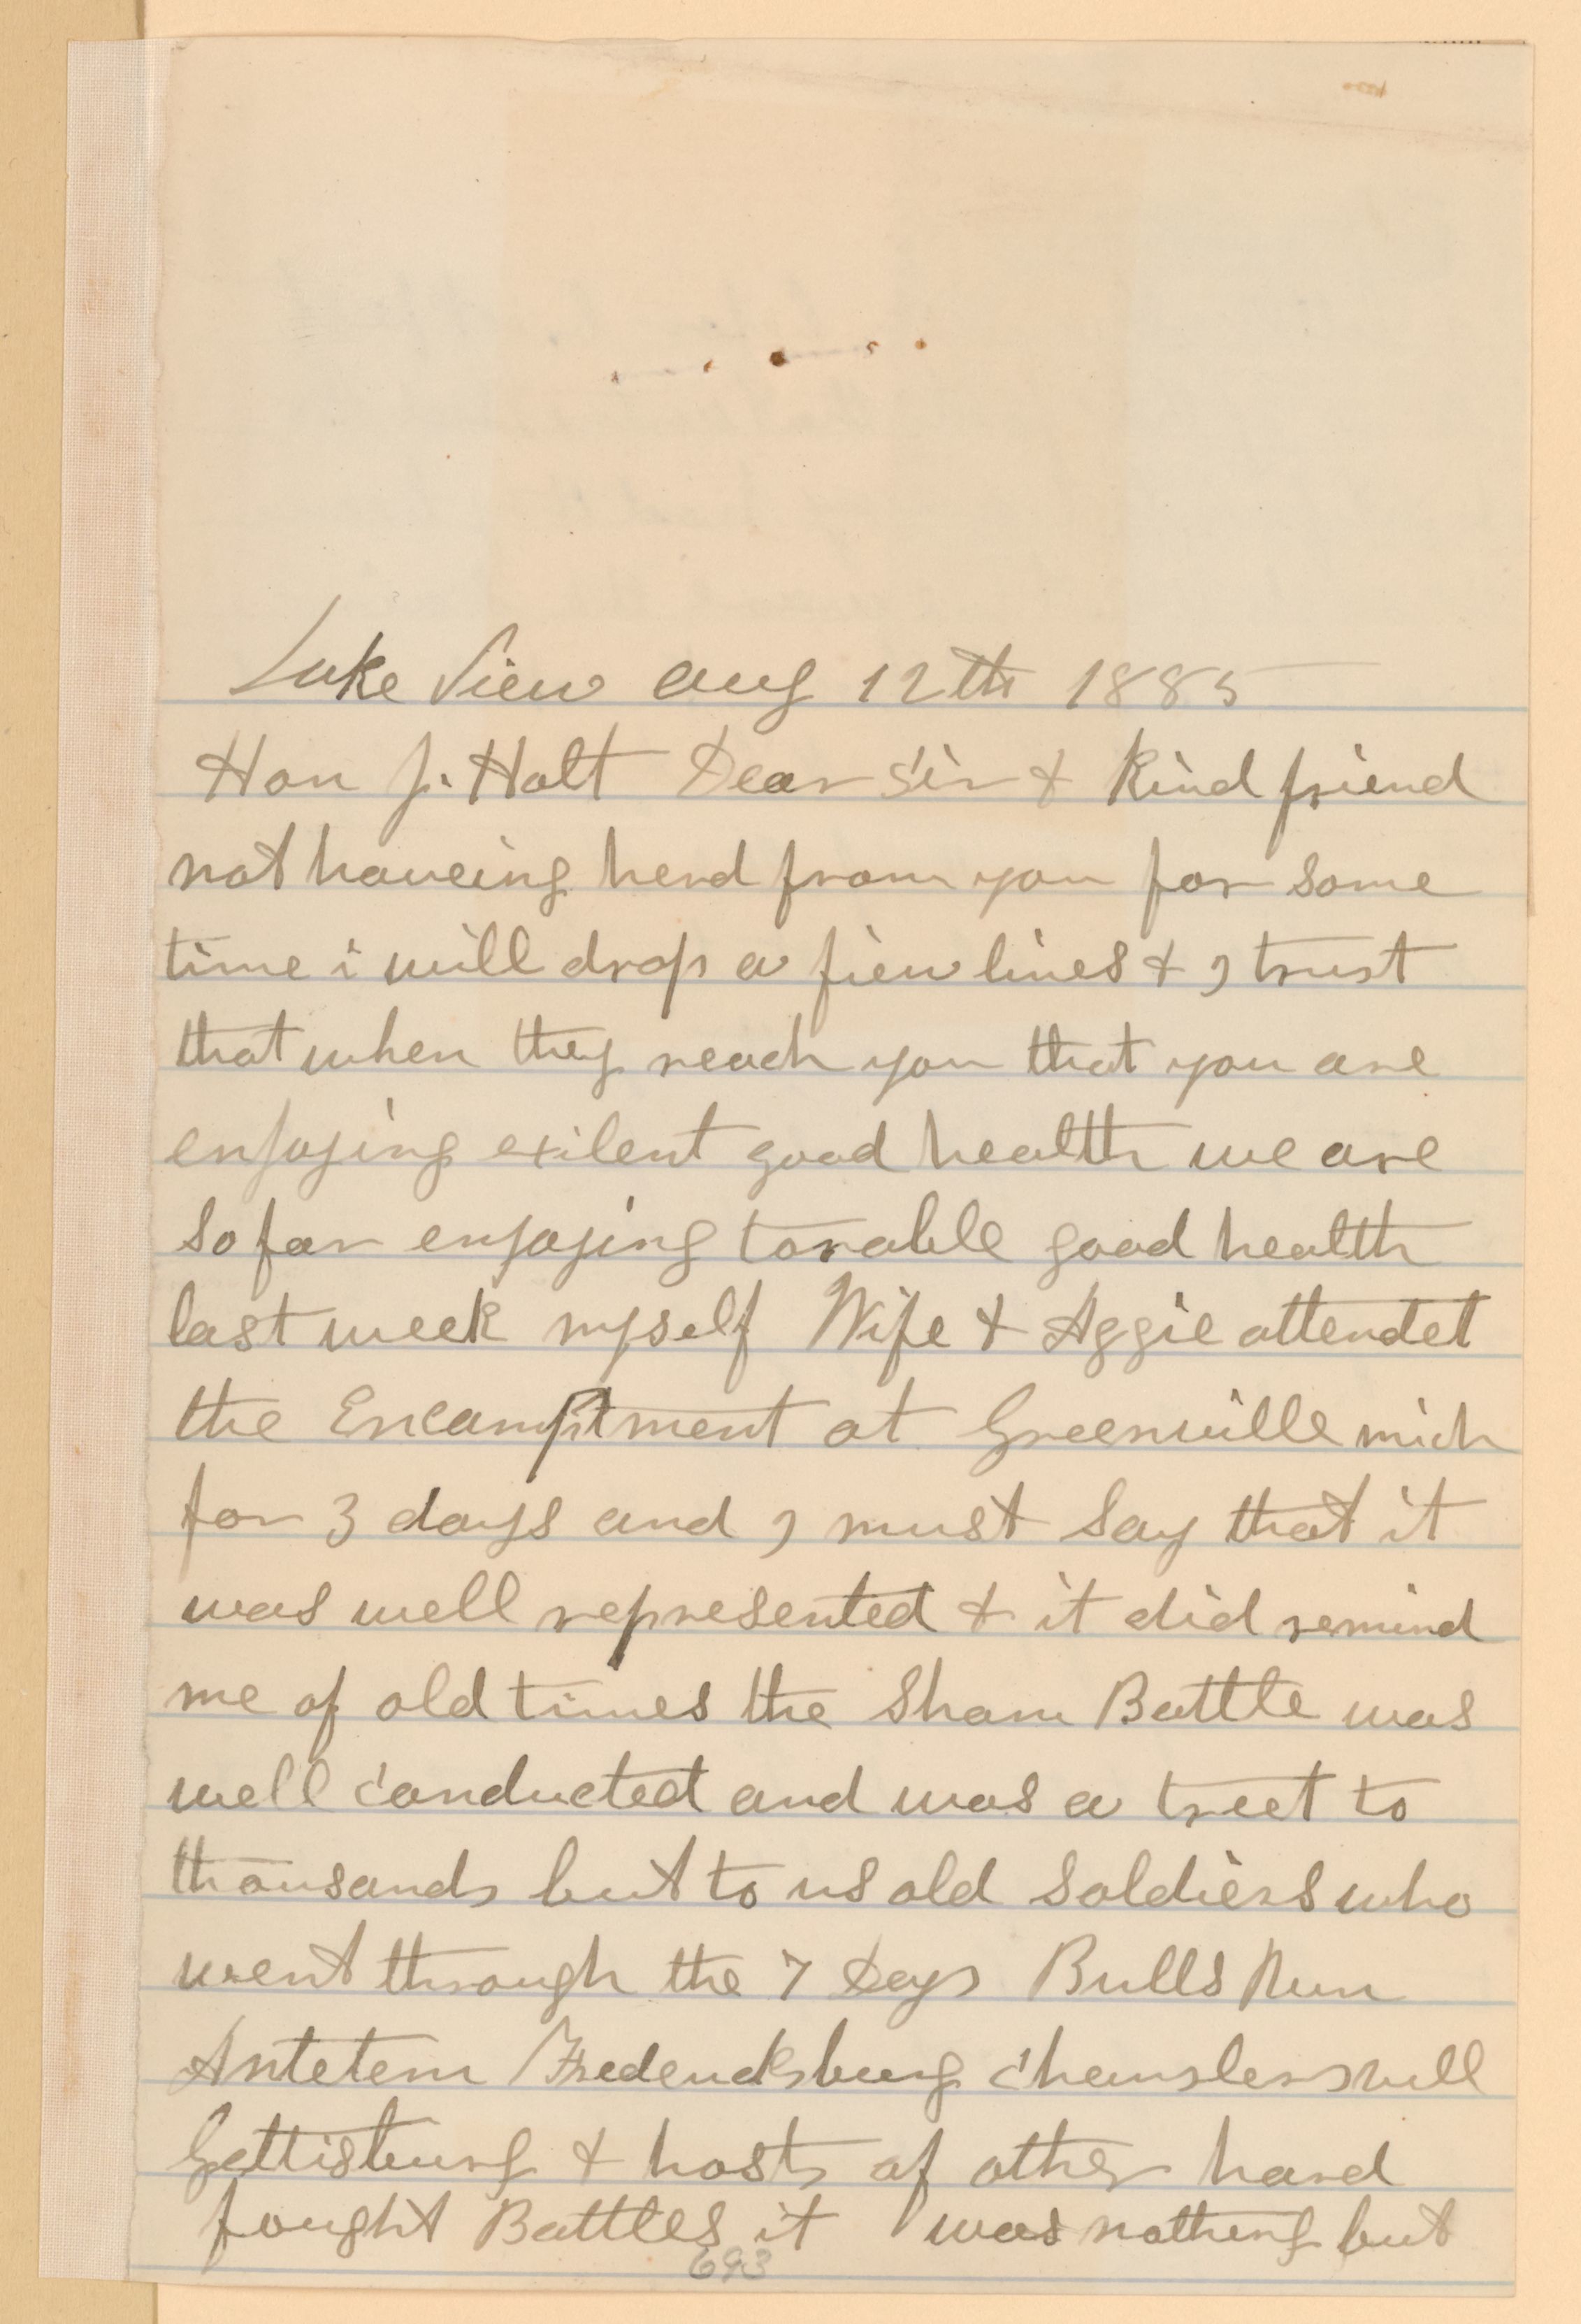 Lake View Aug 12th 1885
Hon J. Holt Dear Sir & Kind friend
not haveing herd from you for some
time i will drop a fiew lines & I trust
that when they reach you that you are
enjoying exilent good health we are
so far enjoying torable good health
last week myself Wife & Aggie attendet
the Encamptment at Greenville mich
for 3 days and I must Say that it
was well represented & it did remind
me of old times the Sham Battle was
well conducted and was a treet to
thousands but to us old Soldiers who
went through the 7 Days Bulls Run
Antetem Fredericksburg Chanslersvill
Gettisburg & hosts of other hard
fought Battles it was nothing but
693